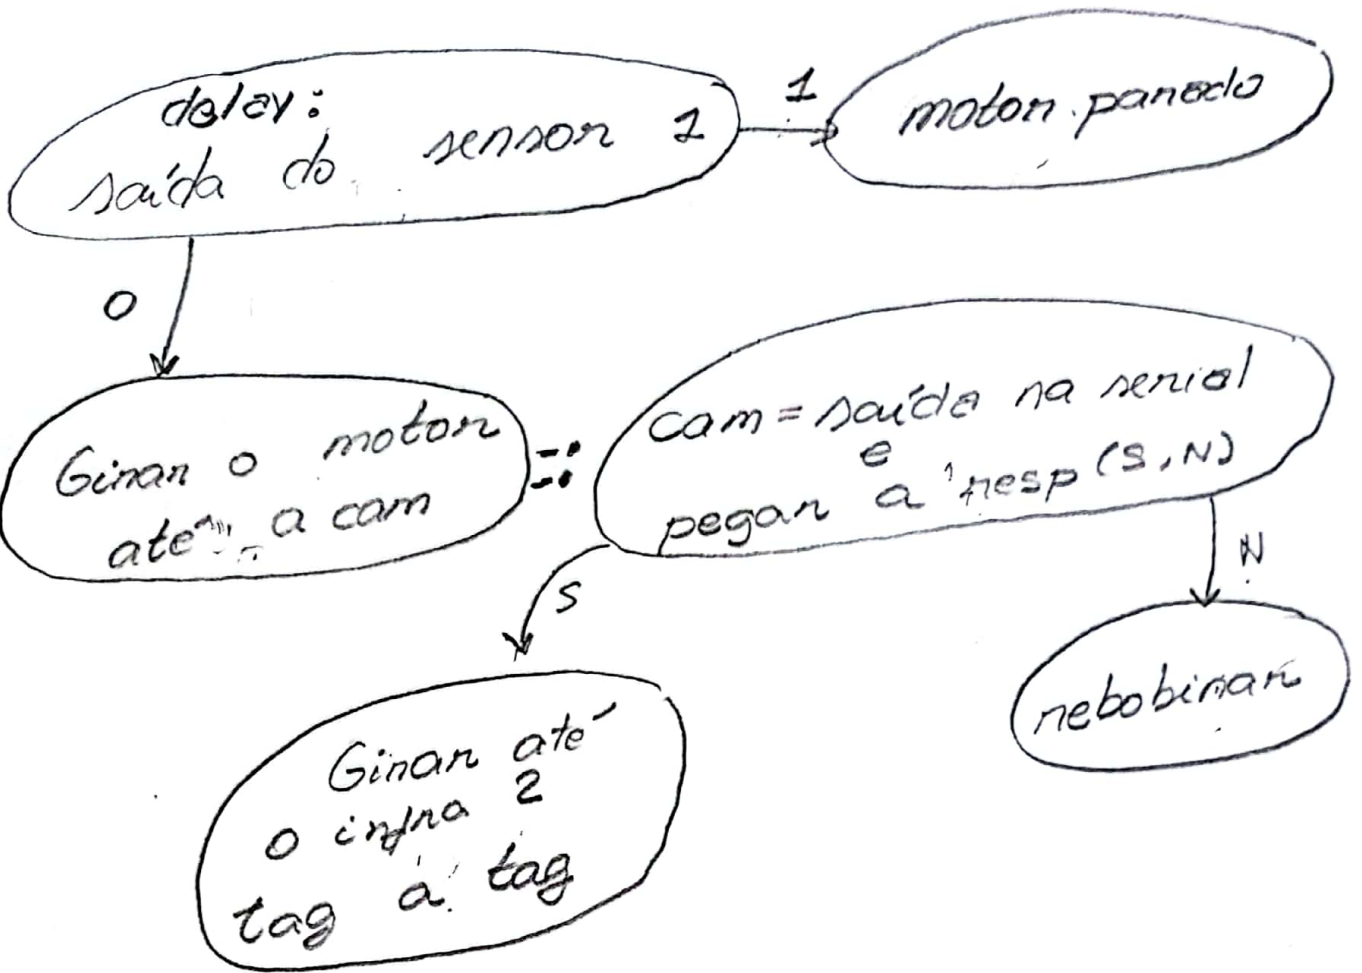 delay:
saída do sensor 1
1
motor parado
0
Girar o motor
até a cam
cam = saída na serial
e
pegar a resp (S, N)
S
N
rebobinar
Girar até
o infra 2
tag a tag